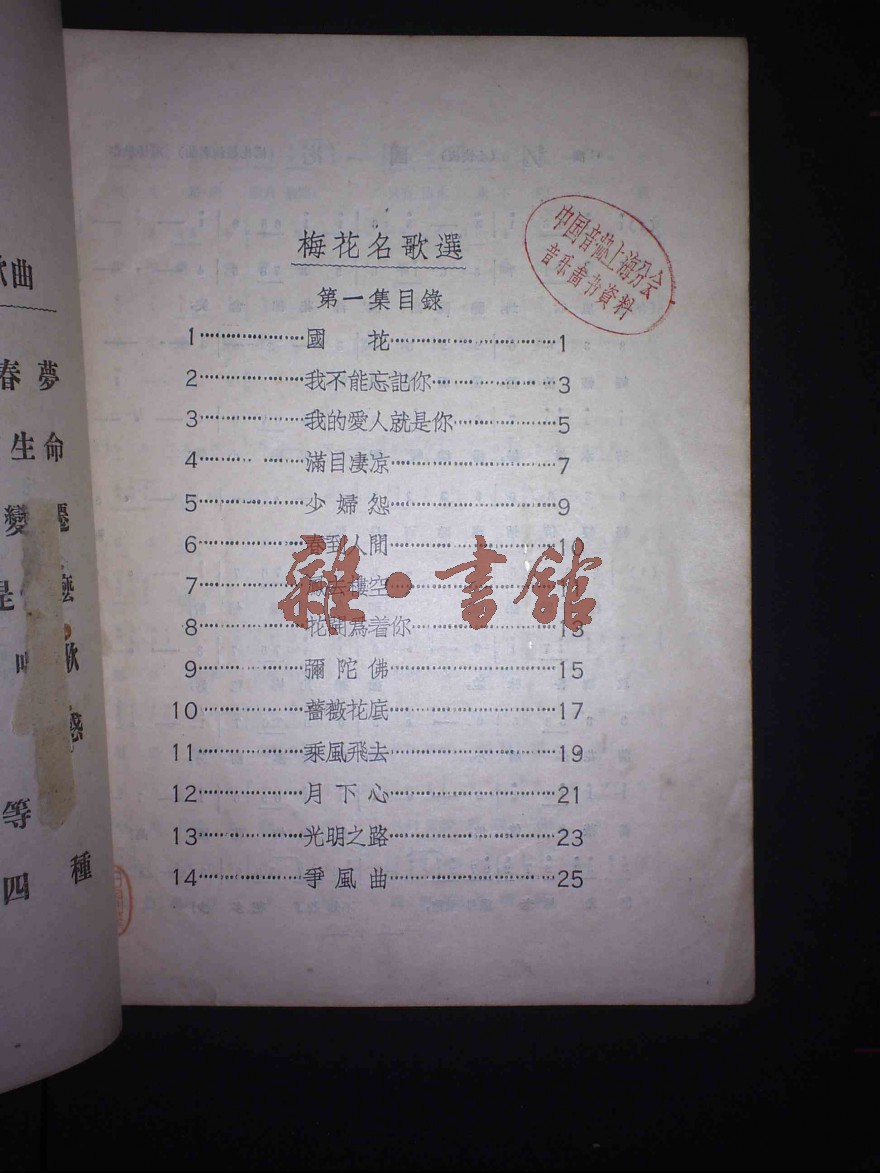 梅花名歌選
第一集目錄
1 國花 1
2 我不能忘記你 3
3 我的愛人就是你 5
4 滿目凄涼 7
5 少婦怨 9
6 春到人間 10
7 鳳去樓空
8 花開爲着你 13
9 彌陀佛 15
10 薔薇花底 17
11 乘風飛去 19
12 月下心 21
13 光明之路 23
14 爭風曲 25
中国音协上海分会
音乐啚书資料
雜·書館
歌曲
春夢
生命
變
歌
惑
等
四種